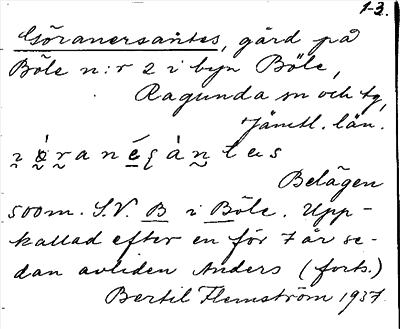 1-3.
Göranersäntes, gård på
Böle n:r 2 i byn Böle,
Ragunda sn och tg,
Jämtl. län.
Belägen
500 m. S.V. B i Böle. Upp-
kallad efter en för 7 år se-
dan avliden Anders (forts.)
Bertil Flemström 1937.